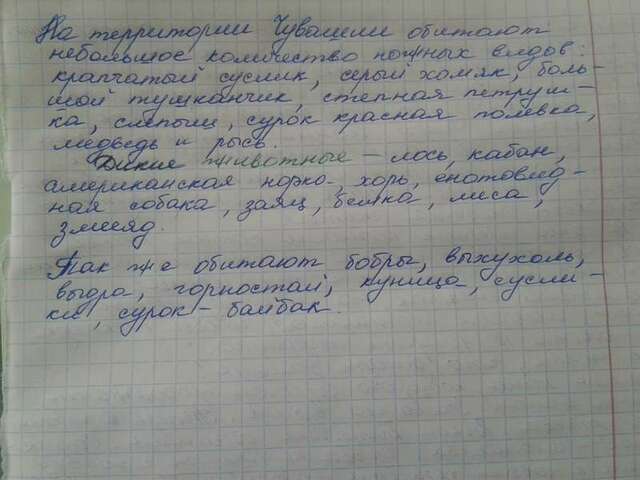 На территории Чувашии обитают
небольшое количество нужных видов:
крапчатый суслик, серый хомяк, боль-
шой тушканчик, степная пеструш-
ка, слепыш, сурок, красная полевка,
медведь и рысь.
Дикие животные - лось, кабан,
американская норка, хорь, енотовид-
ная собака, заяц, белка, лиса,
змееяд.
Так же обитают бобры, выхухоль,
выдра, горностай, куница, сусли-
к, сурок - байбак.